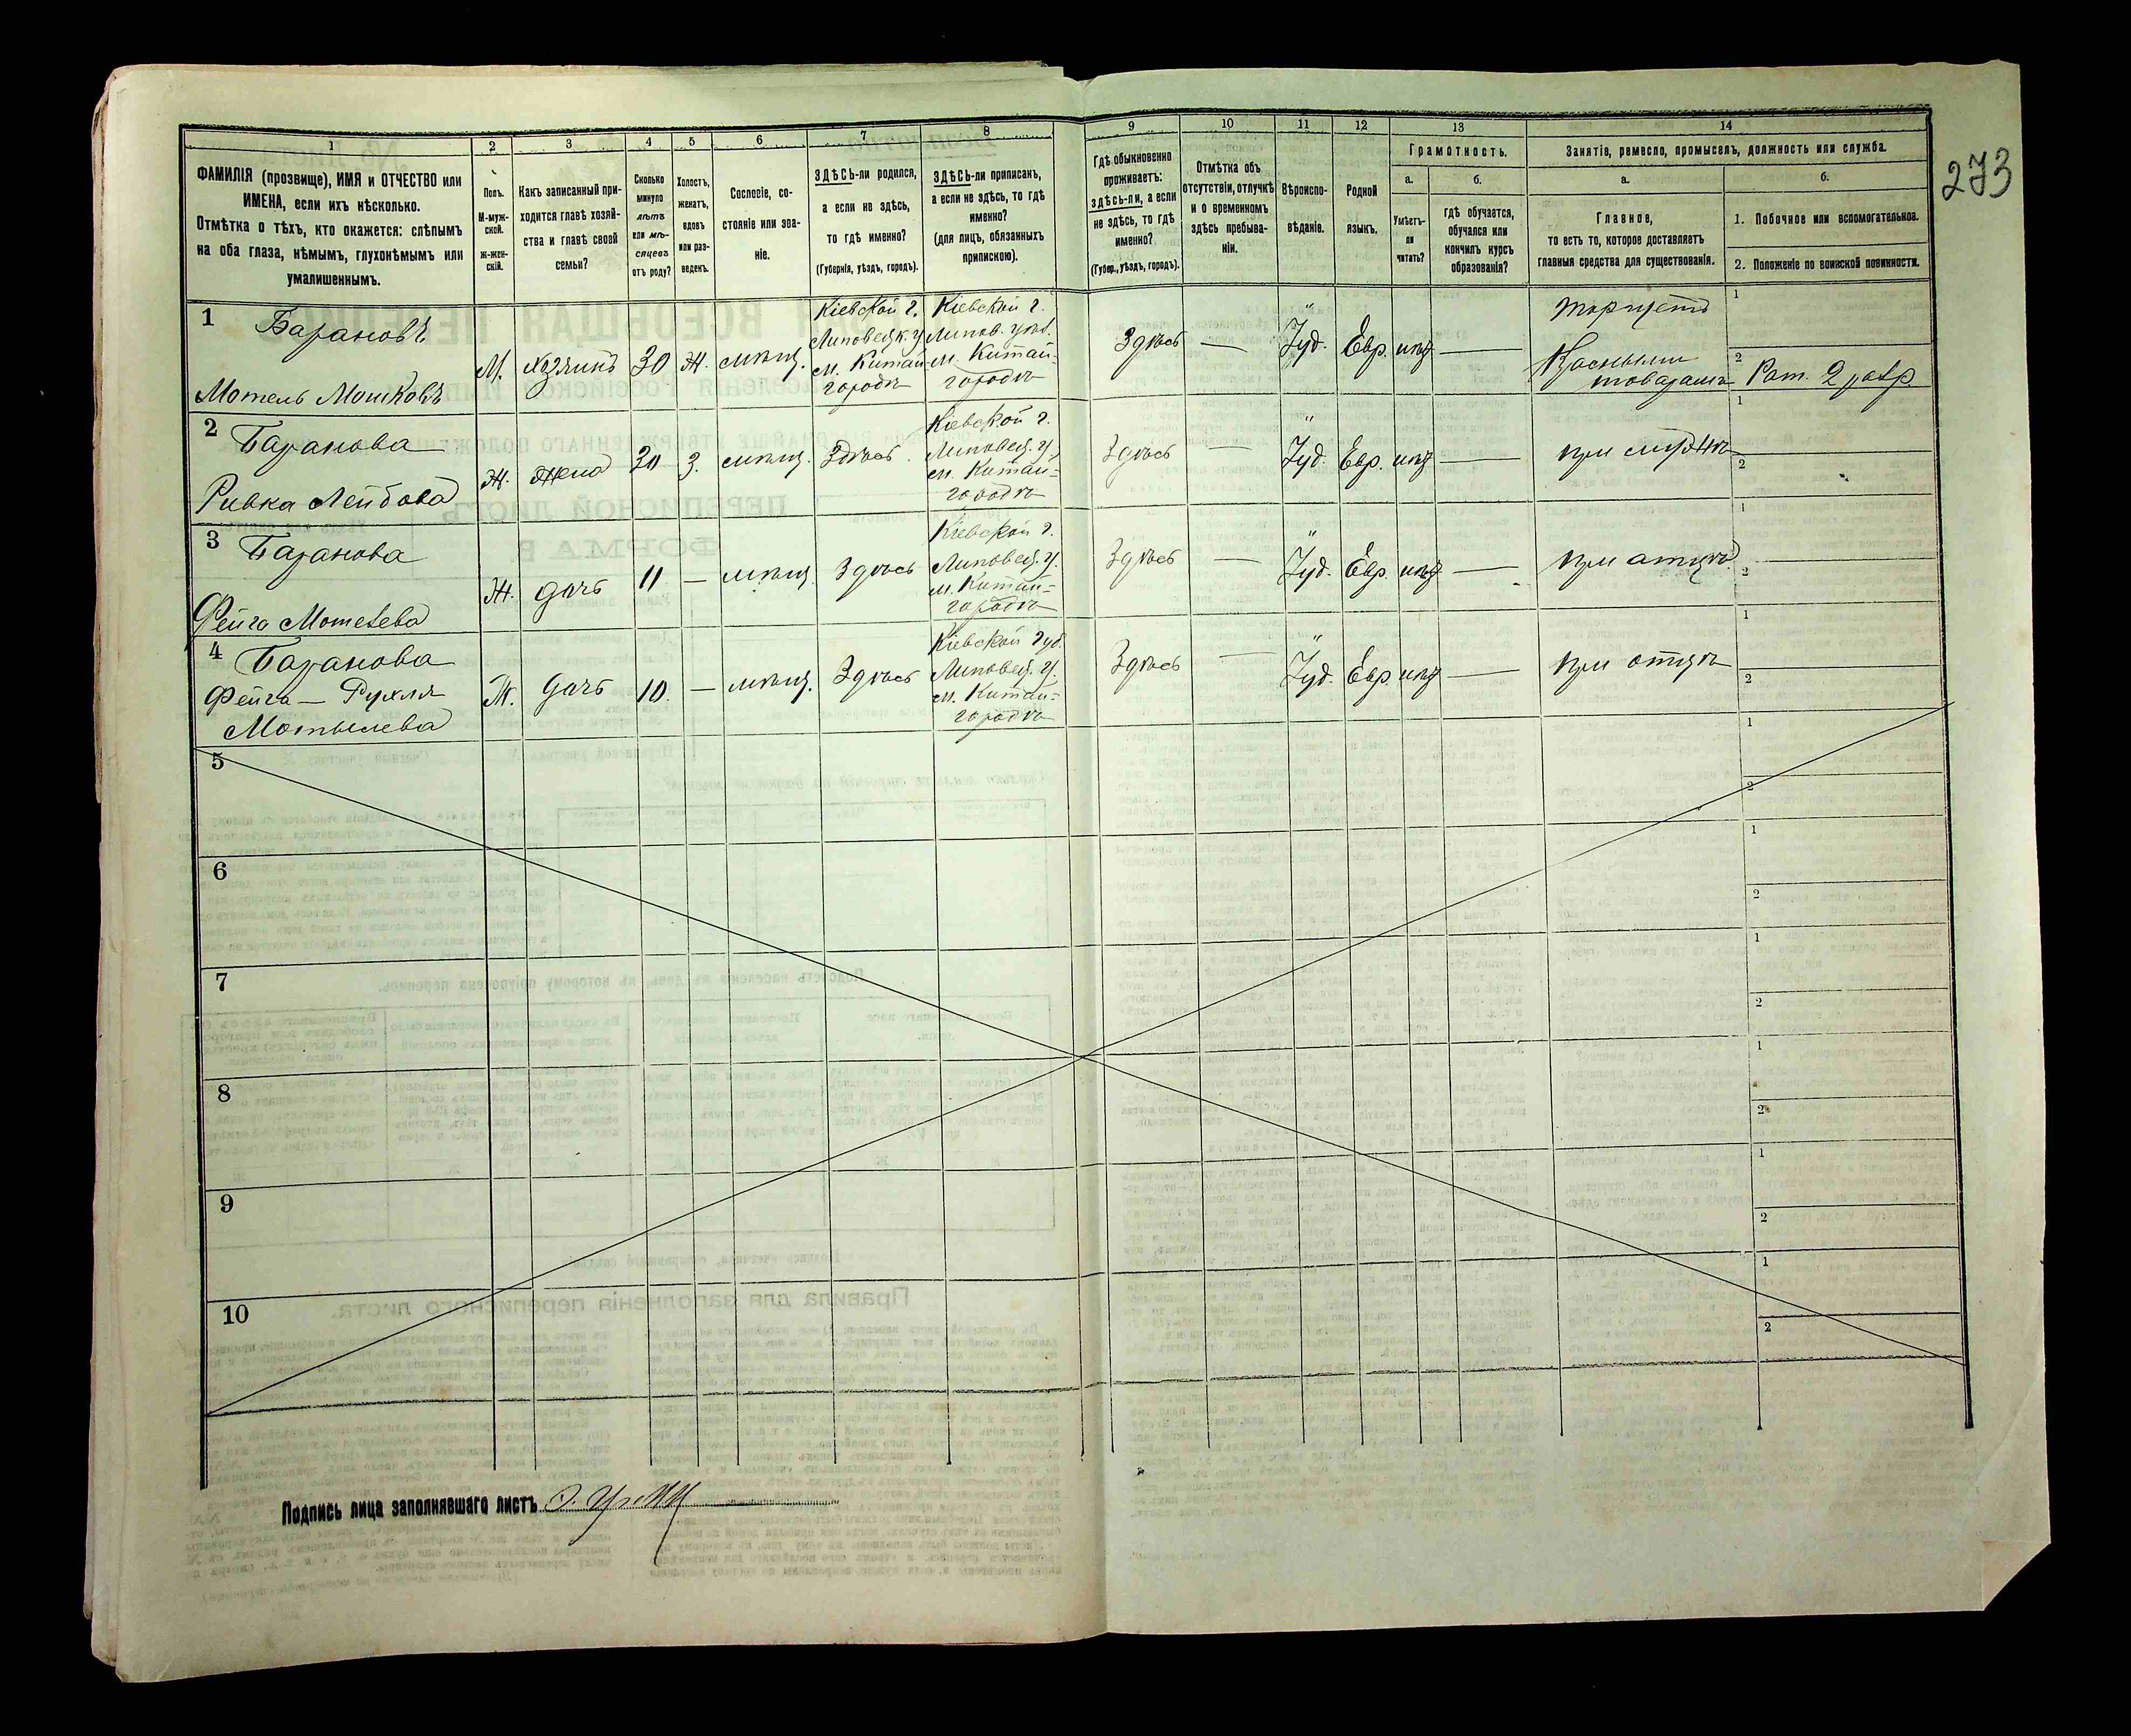 273
1 2 3 4 5 6 7 8 9 10 11 12 13 14
ФАМИЛІЯ (прозвище), ИМЯ и ОТЧЕСТВО или
ИМЕНА, если ихъ нѣсколько.
Отмѣтка о тѣхъ, кто окажется: слѣпымъ
на оба глаза, нѣмымъ, глухонѣмымъ или
умалишеннымъ.
Полъ.
М-муж-
ской.
Ж-жен-
скій.
Какъ записанный при-
ходится главѣ хозяй-
ства и главѣ своей
семьи?
Сколько
минуло
лѣтъ
или мѣ-
сяцевъ
отъ роду?
Холостъ,
женатъ,
вдовъ
или раз-
веденъ.
Сословіе, со-
стояніе или зва-
ніе.
ЗДѢСЬ-ли родился,
а если не здѣсь,
то гдѣ именно?
(Губернія, уѣздъ, городъ).
ЗДѢСЬ-ли приписанъ,
а если не здѣсь, то гдѣ
именно?
(для лицъ, обязанныхъ
припискою).
Гдѣ обыкновенно
проживаетъ:
здѣсь-ли, а если
не здѣсь, то гдѣ
именно?
(Губер., уѣздъ, городъ).
Отмѣтка объ
отсутствіи, отлучкѣ
и о временномъ
здѣсь пребыва-
ніи.
Вѣроиспо-
вѣданіе.
Родной
языкъ.
Грамотность.
а.
Умѣетъ-
ли
читать?
б.
гдѣ обучается,
обучался или
кончилъ курсъ
образованія?
Занятіе, ремесло, промыселъ, должность или служба.
а.
Главное,
то есть то, которое доставляетъ
главныя средства для существованія.
б.
1. Побочное или вспомогательное.
2. Положеніе по воинской повинности.
1
Барановъ
Мотель Мошковъ
М.
хозяинъ
30
Ж.
мѣщ.
Кіевской г.
Липовецк. у
м. Китай
городкѣ
Кіевской г.
Липов. уѣз.
м. Китай-
городкѣ
Здѣсь
—
Іуд.
Евр.
—
торгуетъ
Краснымъ
товарамъ
1
2
Рат. 2 разр.
2
Баранова
Ривка Лейбова
Ж.
жена
30
З.
мѣщ.
Здѣсь
Кіевской г.
Липовец. у.
м. Китай-
городкѣ
Здѣсь
—
Іуд.
Евр.
—
при мужѣ
1
2
3
Баранова
Фейга Мотелева
Ж.
дочь
11
—
мѣщ.
Здѣсь
Кіевской г.
Липовец. у.
м. Китай-
городкѣ
Здѣсь
—
Іуд.
Евр.
—
при отцѣ
1
2
4
Баранова
Фейга — Рухля
Мотылева
Ж.
дочь
10.
—
мѣщ.
Здѣсь
Кіевской губ.
Липовец. у.
м. Китай-
городкѣ
Здѣсь
—
Іуд.
Евр.
—
при отцѣ
1
2
5
1
2
6
1
2
7
1
2
8
1
2
9
1
2
10
1
2
Подпись лица заполнявшаго листъ